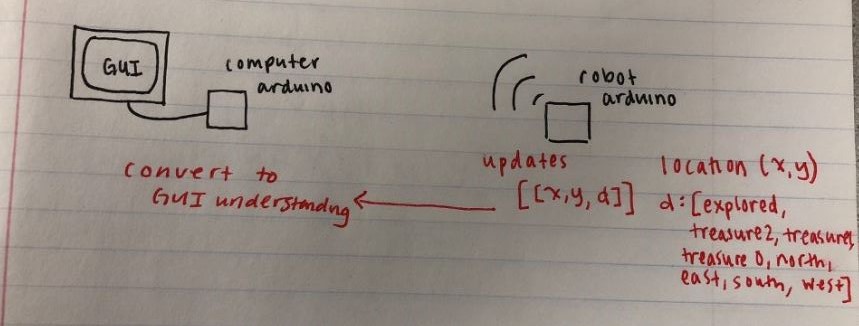 GUI
computer
arduino
robot
arduino
convert to
GUI understanding
updates
[[x,y,d]]
location (x,y)
d:[explored,
treasure2, treasure1,
treasure 0, north,
east, south, west]